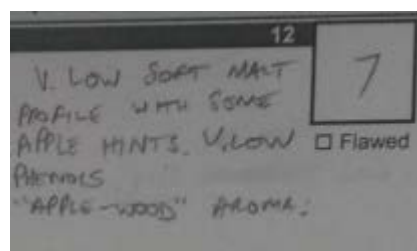 12
V. LOW SOFT MALT
7
PROFILE WITH SOME
APPLE HINTS. V.LOW
☐ Flawed
PHENOLS
"APPLE-WOOD" AROMA.